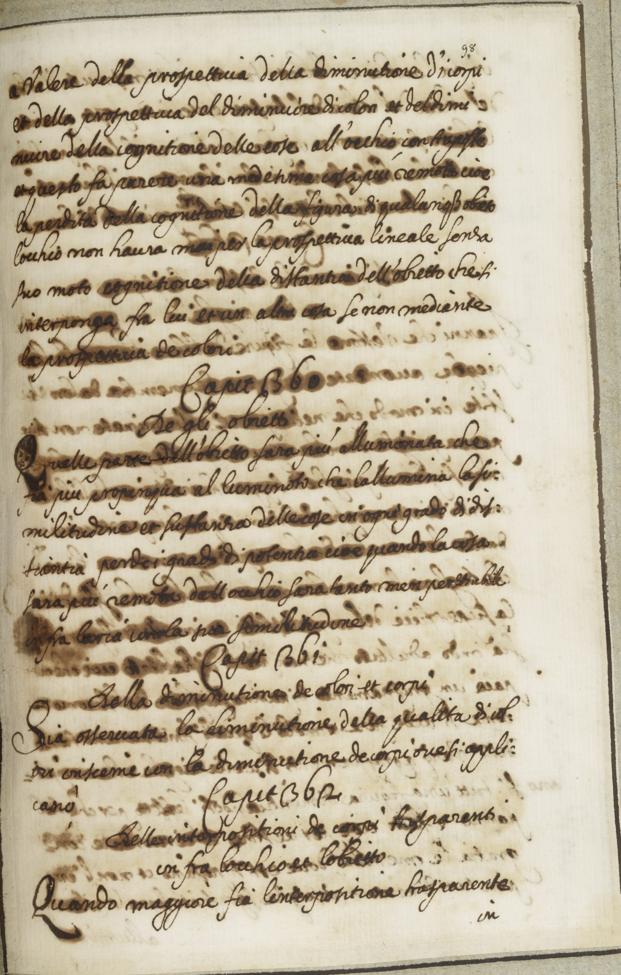 98
a Valere della prospettiva della diminutione d'i corpi
et della prospettiva del diminuire di colori et del dimi
nuire della cognitione delle cose all'occhio contraposte
et questo fa parere una medesima cosa più remota cioè
la perdita della cognitione della figura di qualunqs obieto
l'occhio non havra mai per la prospettiva lineale senza
suo moto cognitione della distantia dell'obietto che si
interponga fra lui et un altra cosa se non mediante
la prospettiva de colori
Capit 360
De gli obietti
Quelle parte dell'obietto sara più alluminata che
fia più propinqua al luminoso che l'allumina la si:
militudine et sustantia delle cose in ogni grado di dis:
tantia perde i gradi di potentia cioe quando la cosa
sara più remota dall occhio sara tanto men penetrabile
in fra l'aria con la sua similitudine
Capit 361
Della diminutione de colori et corpi
Sia osservata la diminutione della qualità di col:
ori insieme con la diminutione de corpi ove si appli:
cano
Capit 362
Delle interpositioni de corpi trasparenti
in fra l'occhio et l'obietto
Quando maggiore fia l'interpositione trasparente
in